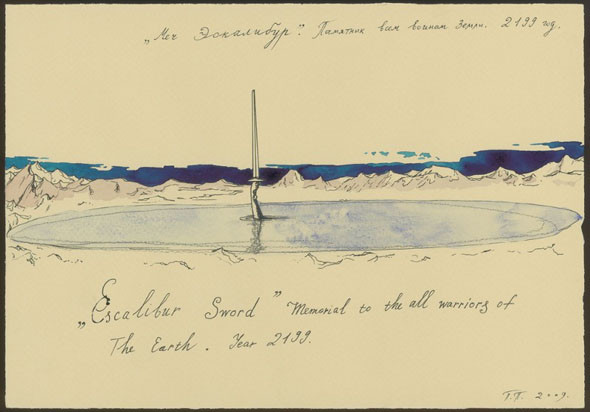 „Меч Эскалибур". Памятник всем воинам Земли. 2199 год.
„Escalibur Sword" Memorial to the all warriors of
The Earth. Year 2199.
Г.П. 2009.